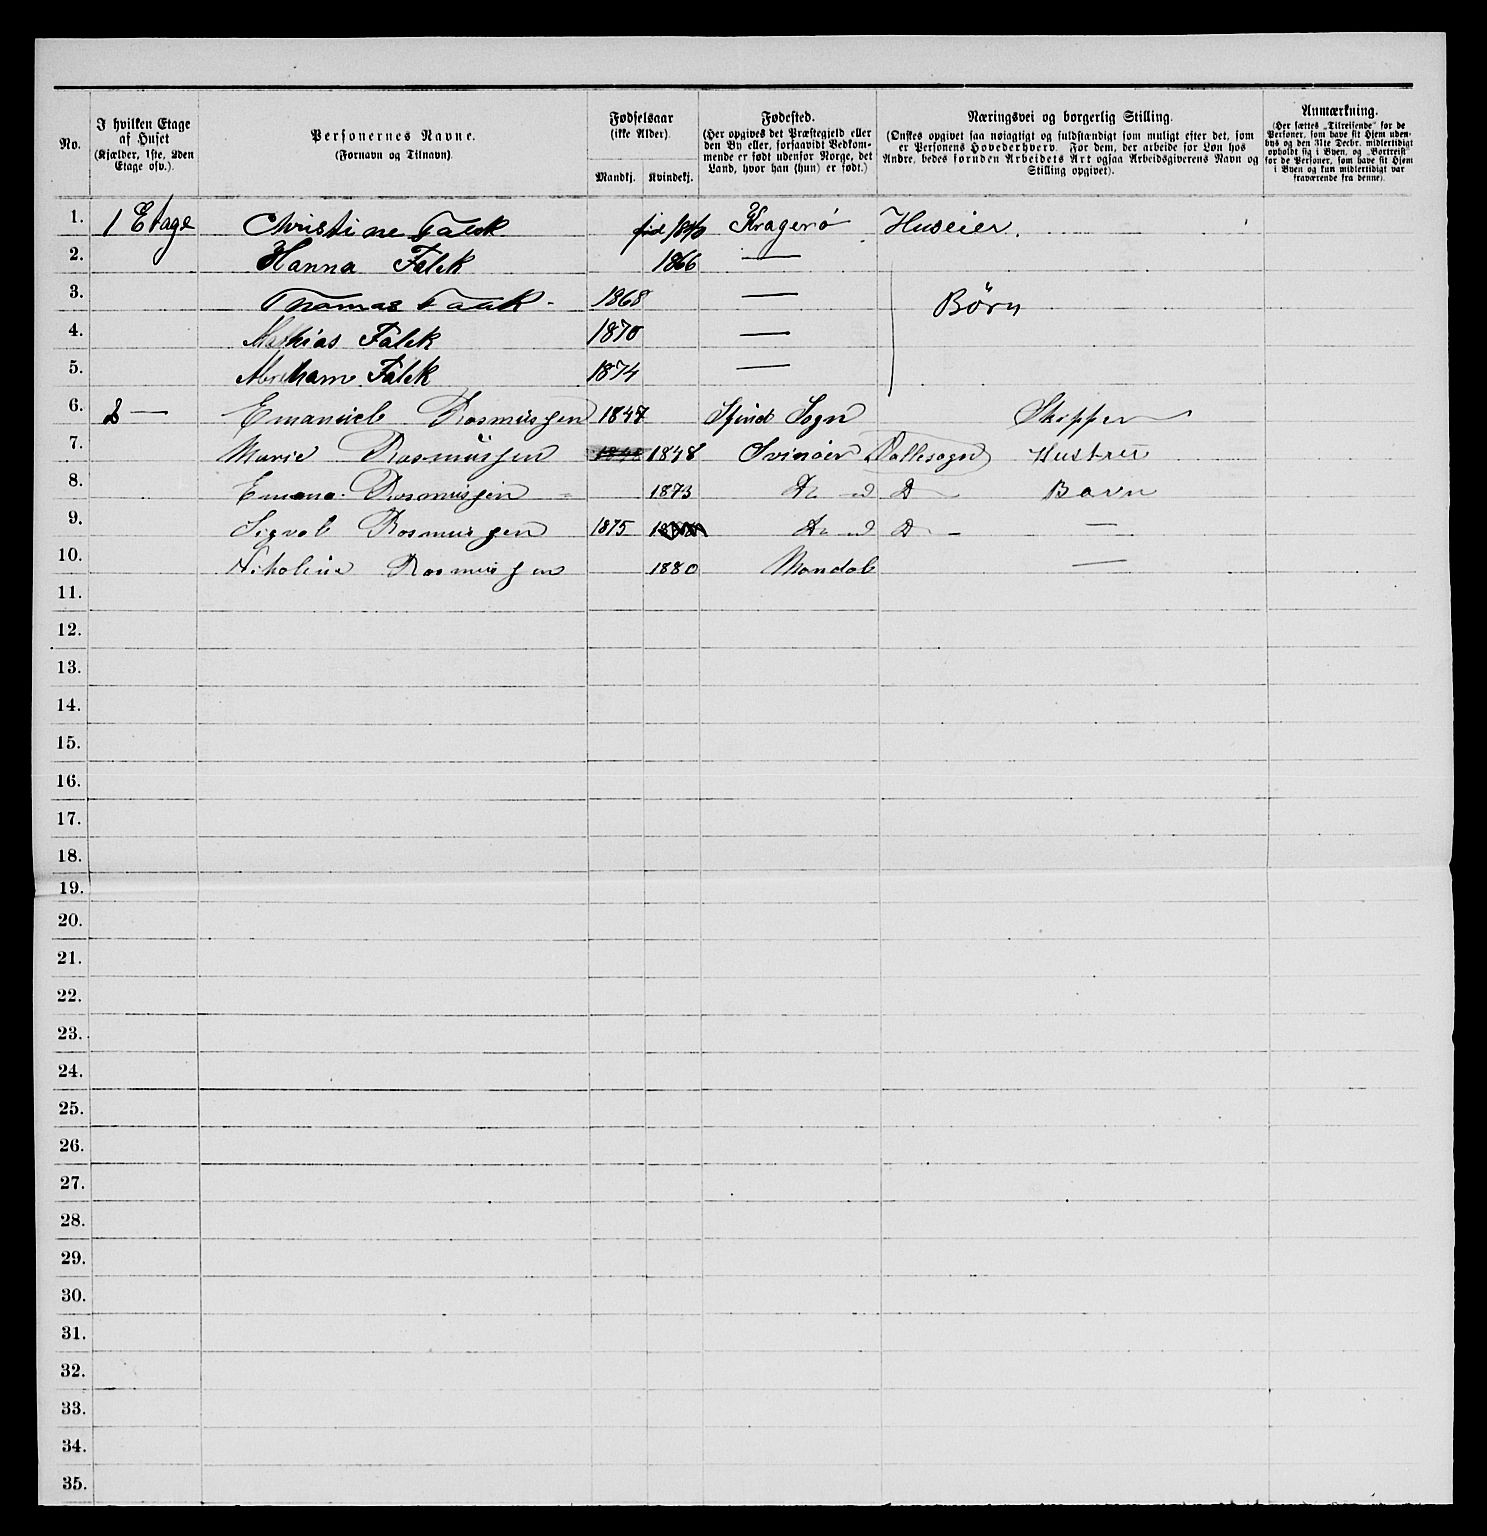 No.
I hvilken Etage af Huset (Kjælder, 1ste, 2den Etage osv.).
Personernes Navne. (Fornavn og Tilnavn).
Fødselsaar (ikke Alder).
Mandkj. Kvindekj.
Fødested. (Her opgives det Præstegjeld eller den By eller, forsaavidt Vedkommende er født udenfor Norge, det Land, hvor han (hun) er født.)
Næringsvei og borgerlig Stilling. (Ønskes opgivet saa nøiagtigt og fuldstændigt som muligt efter det, som er Personens Hovederhverv. For dem, der arbeide for Løn hos Andre, bedes foruden Arbeidets Art ogsaa Arbeidsgiverens Navn og Stilling opgivet).
Anmærkning. (Her sættes „Tilreisende" for de Personer, som have sit Hjem udenbys og den 31te Decbr. midlertidigt opholdt sig i Byen, og „Bortreist" for de Personer, som have sit Hjem i Byen og kun midlertidigt var fraværende fra denne).
1. 1 Etage Christine Falck 1840 Kragerø Huseier.
2. Hanna Falck 1866 —
3. Thomas Falck - 1868 — Børn
4. Mathias Falck 1870 —
5. Abraham Falck 1874 —
6. 2 — Emanuel Rasmussen 1847 Spind Sogn Skipper
7. Marie Rasmussen 1848 1848 Svinøer Hallesogn Hustru
8. Emma Rasmussen 1873 Do Do Barn
9. Sigval Rasmussen 1875 Do Do —
10. Nikoline Rasmussen 1880 Mandal —
11.
12.
13.
14.
15.
16.
17.
18.
19.
20.
21.
22.
23.
24.
25.
26.
27.
28.
29.
30.
31.
32.
33.
34.
35.